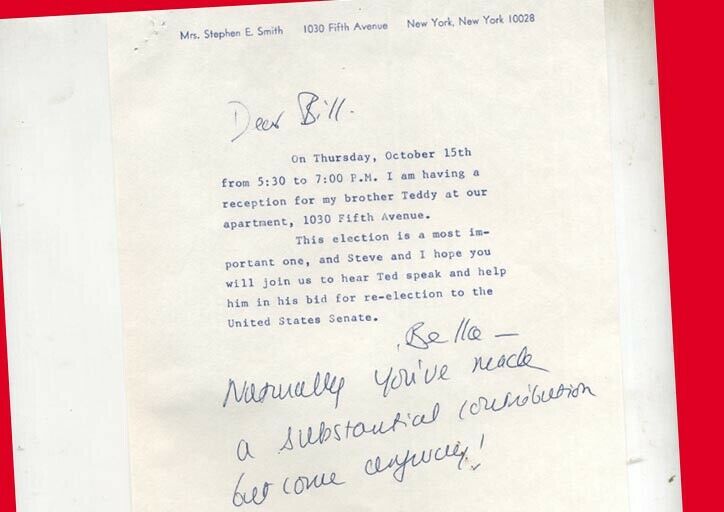 Mrs. Stephen E. Smith 1030 Fifth Avenue New York, New York 10028
Dear Bill.
On Thursday, October 15th
from 5:30 to 7:00 P.M. I am having a
reception for my brother Teddy at our
apartment, 1030 Fifth Avenue.
This election is a most im-
portant one, and Steve and I hope you
will join us to hear Ted speak and help
him in his bid for re-election to the
United States Senate.
Naturally you've made
a substantial contribution
but come anyway!